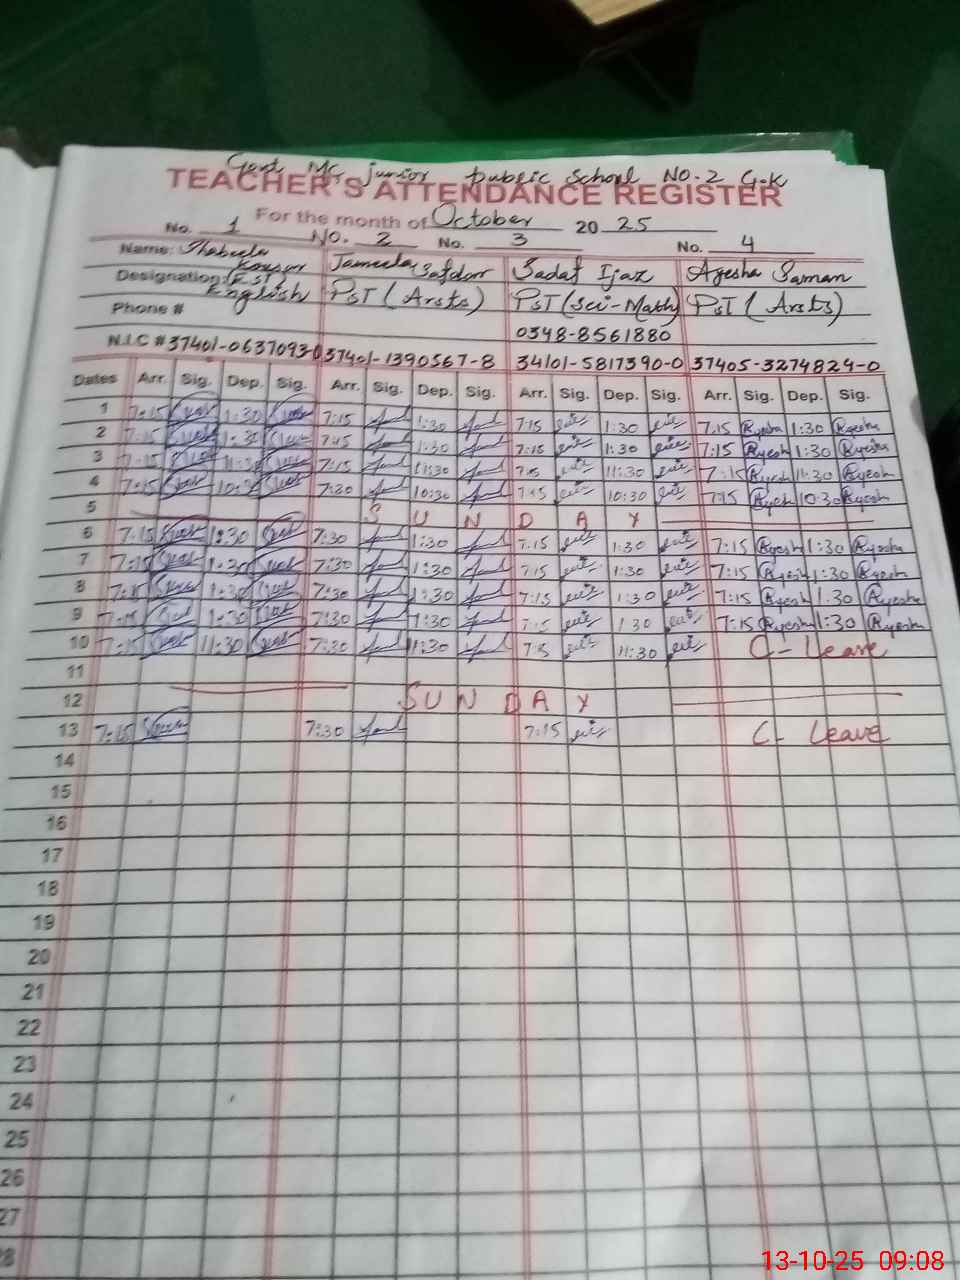 Govt MC Junior Public School NO-2 G-K
TEACHER'S ATTENDANCE REGISTER
For the month of October 2025
No. 1 No. 2 No. 3 No. 4
Name: Kausar Jameela Safdar Sadaf Ijaz Ayesha Saman
Designation: EST English PST (Arsts) PST (Sci-Math) PST (Arsts)
Phone # 0348-8561880
N.I.C # 37401-0637093-0 37401-1390567-8 34101-5817390-0 37405-3274824-0
Dates Arr. Sig. Dep. Sig. Arr. Sig. Dep. Sig. Arr. Sig. Dep. Sig. Arr. Sig. Dep. Sig.
1 7:15 1:30 7:15 1:30 7:15 1:30 7:15 Ayesha 1:30 Ayesha
2 7:15 1:30 7:15 1:30 7:15 1:30 7:15 Ayesh 1:30 Ayesha
3 7:15 11:30 7:15 11:30 7:15 11:30 7:15 Ayesh 11:30 Ayesh
4 7:15 10:30 7:30 10:30 7:15 10:30 7:15 Ayesh 10:30 Ayesh
5 SUNDAY
6 7:15 1:30 7:30 1:30 7:15 1:30 7:15 Ayesh 1:30 Ayesha
7 7:15 1:30 7:30 1:30 7:15 1:30 7:15 Ayesh 1:30 Ayesha
8 7:15 1:30 7:30 1:30 7:15 1:30 7:15 Ayesh 1:30 Ayesha
9 7:15 1:30 7:30 1:30 7:15 1:30 7:15 Ayesha 1:30 Ayesha
10 7:15 11:30 7:30 11:30 7:15 11:30 C-Leave
11
12 SUNDAY
13 7:15 7:30 7:15 C-Leave
14
15
16
17
18
19
20
21
22
23
24
25
26
27
28
13-10-25 09:08